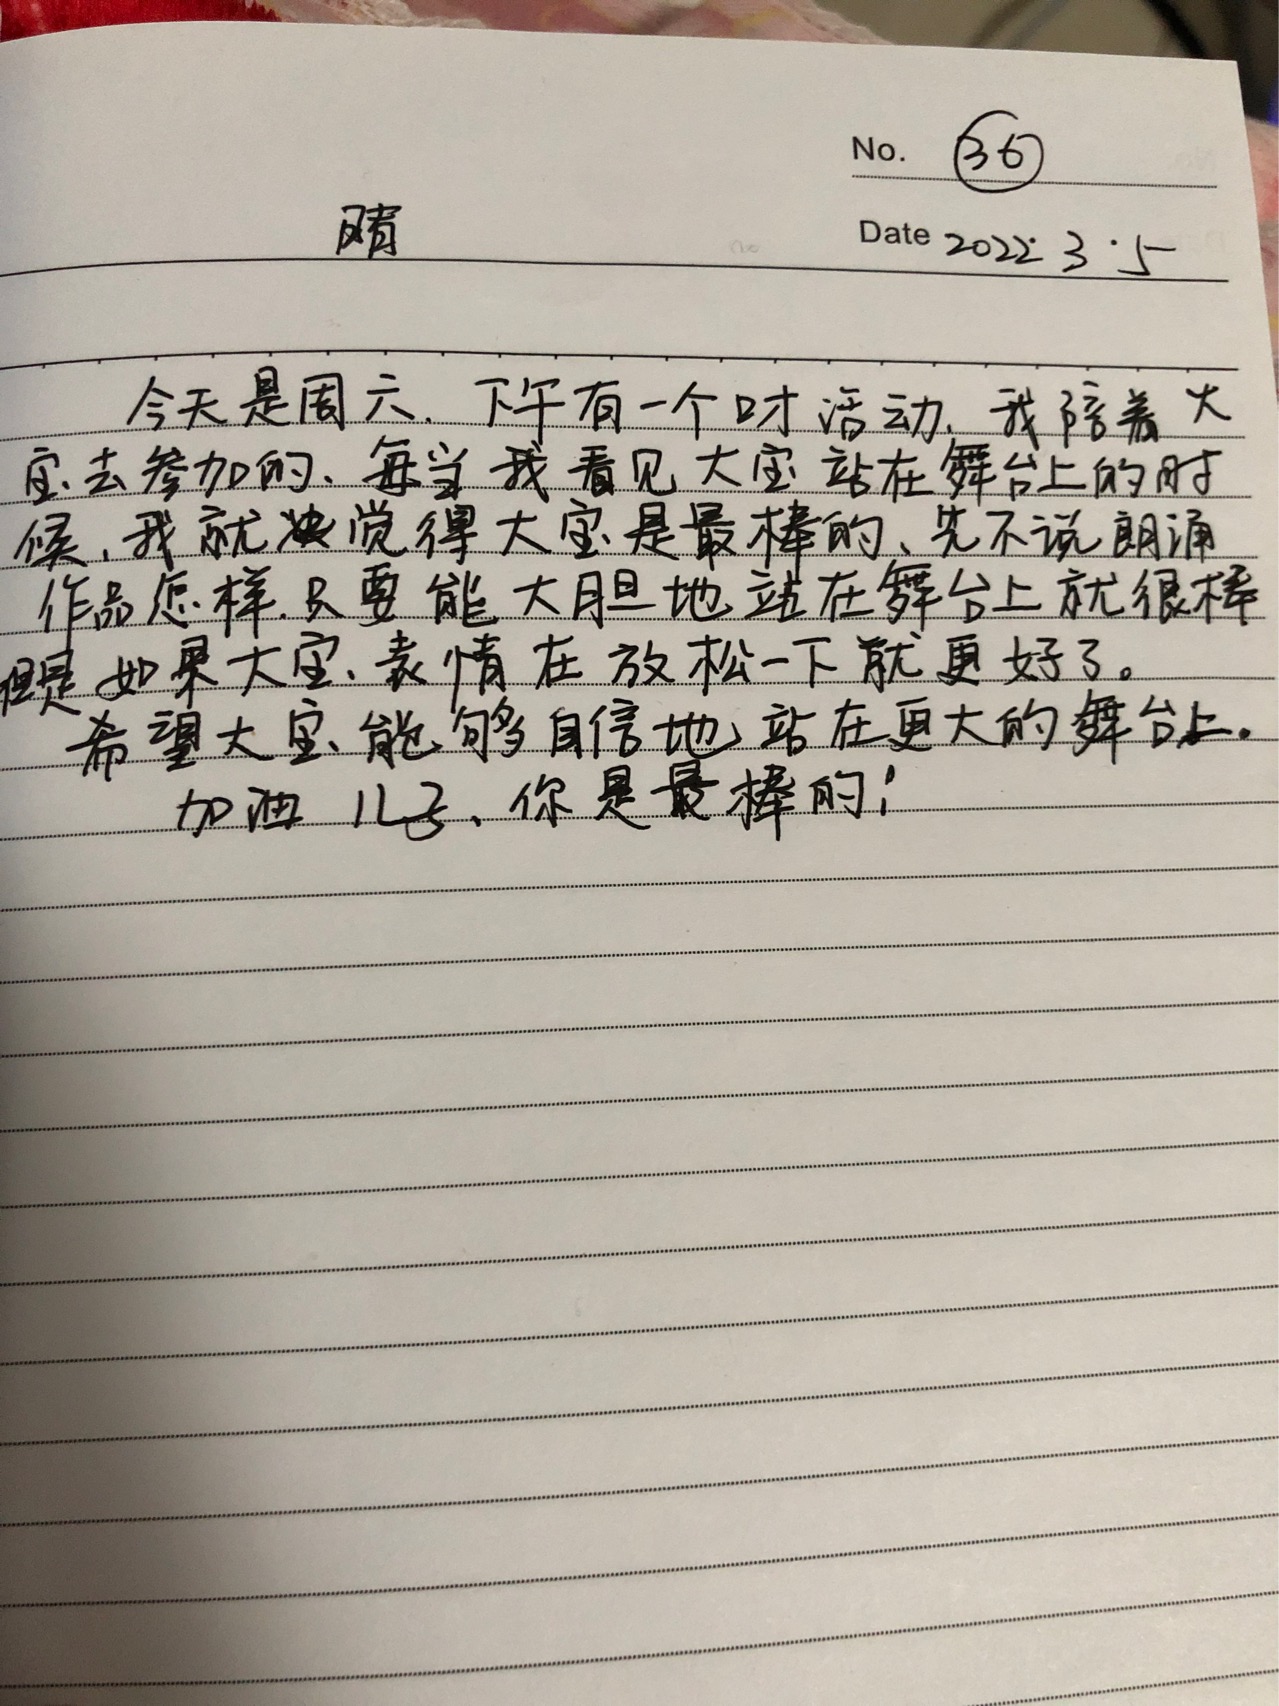 No. 36
晴
Date 2022.3.5
今天是周六.下午有一个口才活动.我陪着大
宝去参加的、每当我看见大宝站在舞台上的时
候、我就觉得大宝是最棒的、先不说朗涌
作品怎样.只要能大胆地站在舞台上就很棒
但是如果大宝、表情在放松一下就更好了。
希望大宝能够自信地站在更大的舞台上.
加油儿子、你是最棒的!